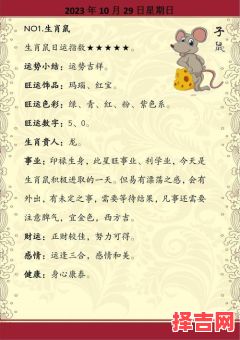 2023 年 10 月 29 日星期日
NO1.生肖鼠
生肖鼠日运指数★★★★★。
运势小结：运势吉祥。
旺运饰品：玛瑙、红宝。
旺运色彩：绿、青、红、粉、紫色系。
旺运数字：5、0。
生肖贵人：龙。
事业：印禄生身，此星旺事业、利学业，今天是
生肖鼠积极进取的一天。但易有漂荡之感，会有
外出，有未定之事，需要等待结果，凡事还需要
注意脾气，宜金色，西方吉。
财运：正财较佳，努力可得。
感情：运逢三合，感情和美。
健康：身心康泰。
子
鼠
择吉网